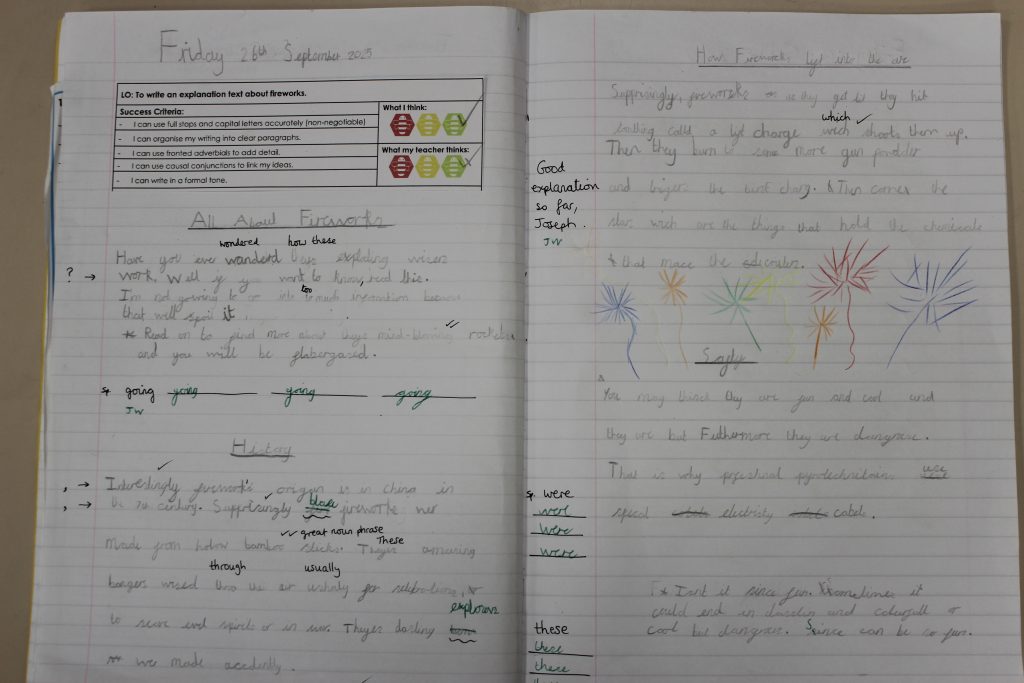 Friday 26th September 2025
LO: To write an explanation text about fireworks.
Success Criteria:
- I can use full stops and capital letters accurately (non-negotiable)
- I can organise my writing into clear paragraphs.
- I can use fronted adverbials to add detail.
- I can use causal conjunctions to link my ideas.
- I can write in a formal tone.
What I think:
What my teacher thinks:
All About Fireworks
wondered how these
Have you ever wanderd exploding
? → work. Well if you want to know, read this.
too
I'm not gowing to into to much becaus
that will spoil it.
* Read on to find more about mind-blowing rockets
and you will be flabergased.
sp going going going going
JW
History
, → Interestingly firework's origon is in China in
, → the 7th century. Supprisingly blaze fireworks wer
great noun phrase
These
made from holow bamboo sticks. Theyes amazing
through usually
bangers wised throo the air ushaly for
explosions
to scare evel spirits or in war. Theyes
* we made acedently.
How Fireworks lyt into the are
Supprisingly, fireworks as they get lit they hit
which
somthing calld a lyt charge wich shoots them up.
Then they burn to some more gun powder
Good
explanation
so far,
Joseph.
JW
and the burst charg. Then comes the
stars wich are the things that hold the chemicals
* that mace the
Sayfty
You may think they are fun and cool and
they are but Futhermore they are dangrase.
That is why use
specal electrisity cabels.
sp were
were
were
were
* Isnt it since fun. Sometimes it
could end in and or
cool but dangrous. Since can be so fun.
these
these
these